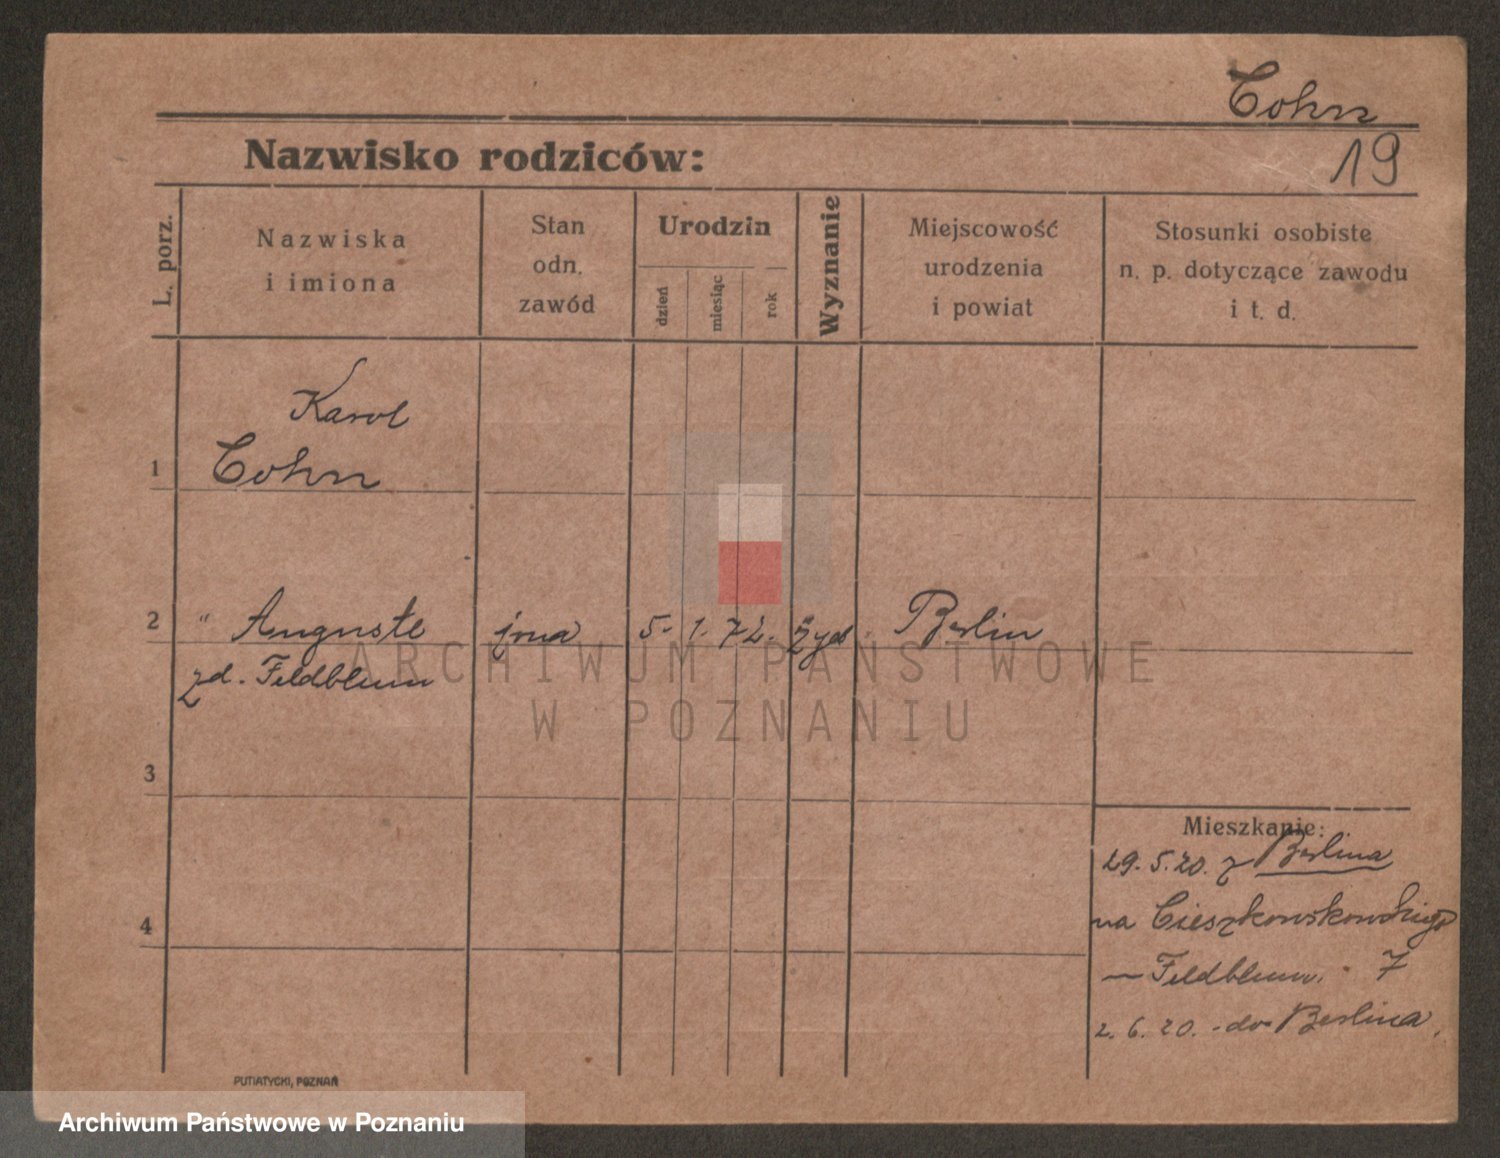 Cohn
19
Nazwisko rodziców:
L. porz.
Nazwiska
i imiona
Stan
odn.
zawód
Urodzin
dzień
miesiąc
rok
Wyznanie
Miejscowość
urodzenia
i powiat
Stosunki osobiste
n. p. dotyczące zawodu
i t. d.
Karol
1 Cohn
2 " Auguste żona 5. 1. 72. żyd. Berlin
zd. Feldblum
3
4
Mieszkanie:
29.5.20. z Berlina
na
— Feldblum. 7
2.6.20. - do Berlina.
PUTIATYCKI, POZNAŃ
ARCHIWUM PAŃSTWOWE
W POZNANIU
Archiwum Państwowe w Poznaniu